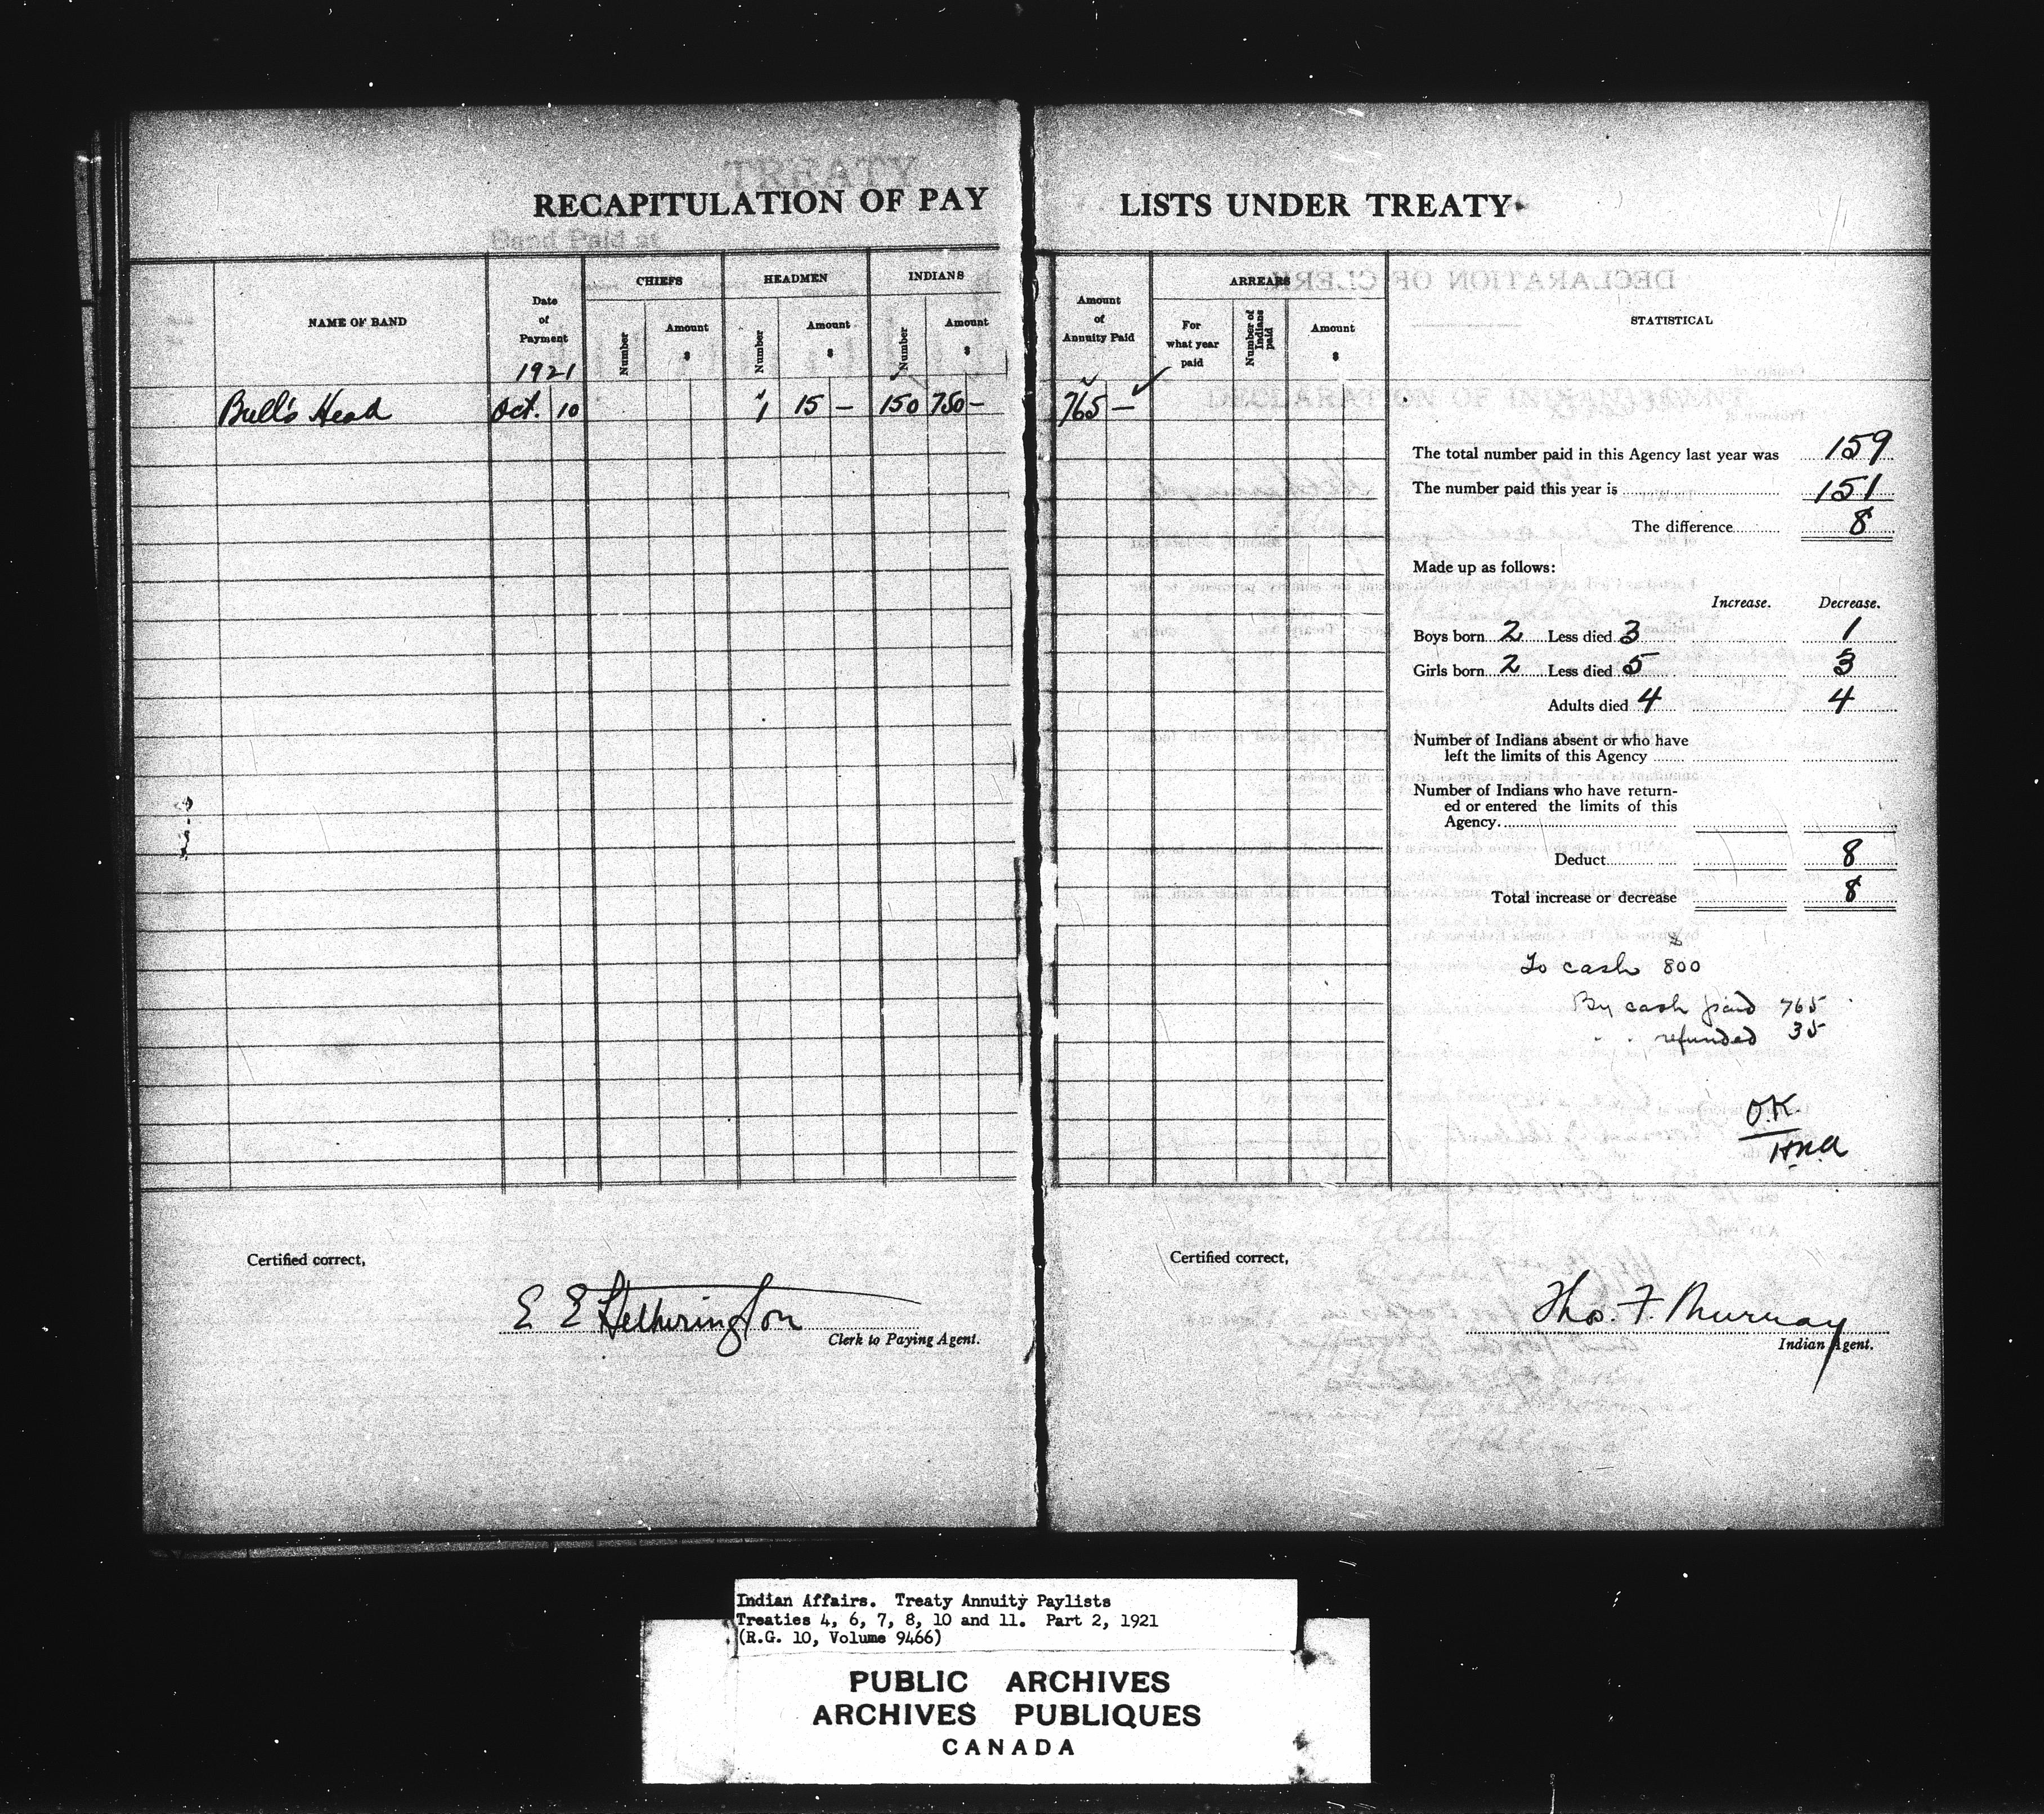 RECAPITULATION OF PAY LISTS UNDER TREATY
Band Paid at
NAME OF BAND
Date
of
Payment
1921
CHIEFS
Number
Amount
$
HEADMEN
Number
Amount
$
INDIANS
Number
Amount
$
Amount
of
Annuity Paid
ARREARS
For
what year
paid
Number of
Indians
paid
Amount
$
STATISTICAL
Bull's Head Oct. 10 1 15 — 150 750 — 765 —
The total number paid in this Agency last year was 159
The number paid this year is 151
The difference 8
Made up as follows:
Increase. Decrease.
Boys born 2 Less died 3 1
Girls born 2 Less died 5 3
Adults died 4 4
Number of Indians absent or who have
left the limits of this Agency
Number of Indians who have return-
ed or entered the limits of this
Agency.
Deduct 8
Total increase or decrease 8
$
To cash 800
By cash paid 765
" " refunded 35
O.K
H.N.A
Certified correct,
E E Hetherington
Clerk to Paying Agent.
Certified correct,
Thos. F. Murray
Indian Agent.
Indian Affairs. Treaty Annuity Paylists
Treaties 4, 6, 7, 8, 10 and 11. Part 2, 1921
(R.G. 10, Volume 9466)
PUBLIC ARCHIVES
ARCHIVES PUBLIQUES
CANADA